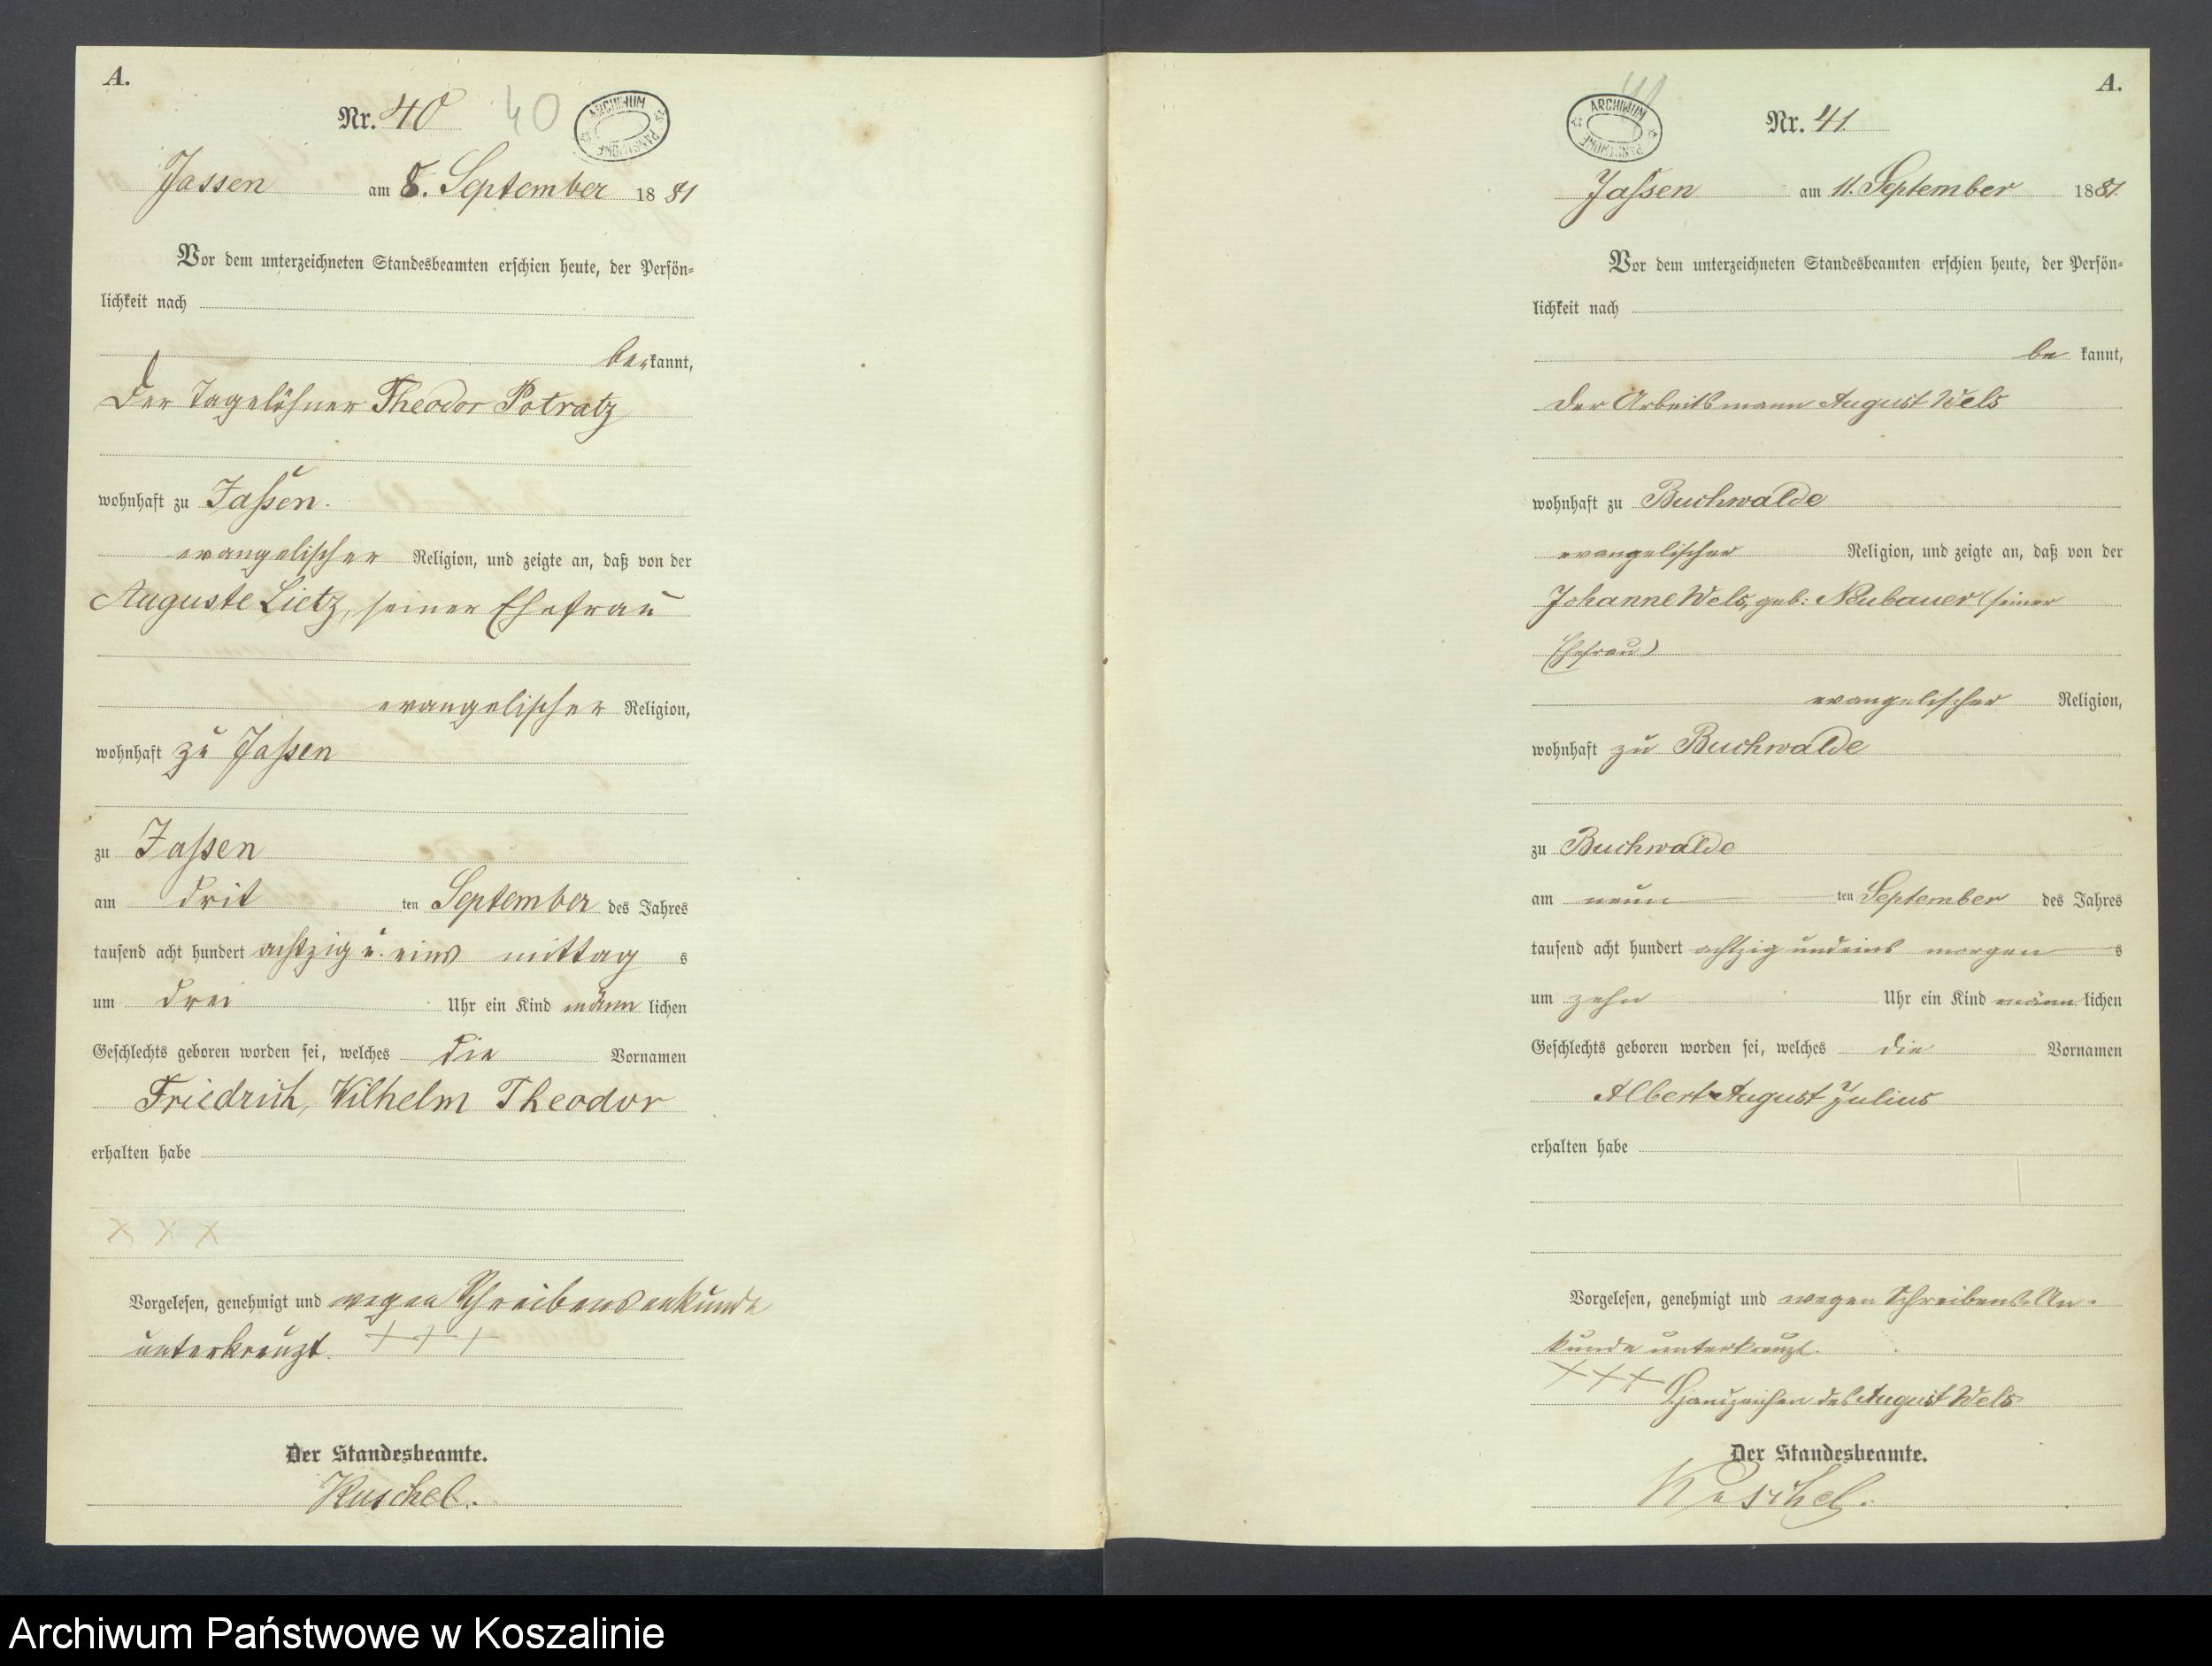 A.
Nr. 40 40
ARCHIWUM PAŃSTWOWE
Jassen am 8. September 1881
Vor dem unterzeichneten Standesbeamten erschien heute, der Persön-
lichkeit nach
bekannt,
Der Tagelöhner Theodor Potratz
wohnhaft zu Jaßen.
evangelischer Religion, und zeigte an, daß von der
Auguste Lietz, seiner Ehefrau
evangelischer Religion,
wohnhaft zu Jaßen
zu Jaßen
am drit ten September des Jahres
tausend acht hundert achtzig u. eins mittag s
um drei Uhr ein Kind männ lichen
Geschlechts geboren worden sei, welches die Vornamen
Friedrich, Wilhelm Theodor
erhalten habe
x x x
Vorgelesen, genehmigt und wegen Schreibensunkunde
unterkreuzt. + + +
Der Standesbeamte.
Kuschel.
A.
41
Nr. 41.
ARCHIWUM PAŃSTWOWE
Jassen am 11. September 1881.
Vor dem unterzeichneten Standesbeamten erschien heute, der Persön-
lichkeit nach
be kannt,
der Arbeitsmann August Wels
wohnhaft zu Buchwalde
evangelischer Religion, und zeigte an, daß von der
Johanne Wels, geb: Neubauer (seiner
Ehefrau)
evangelischer Religion,
wohnhaft zu Buchwalde
zu Buchwalde
am neun ten September des Jahres
tausend acht hundert achtzig und eins morgen s
um zehn Uhr ein Kind männ lichen
Geschlechts geboren worden sei, welches die Vornamen
Albert August Julius
erhalten habe
Vorgelesen, genehmigt und wegen Schreibens-Un-
kunde unterkreuzt.
+ + + Handzeichen des August Wels
Der Standesbeamte.
Kuschel.
Archiwum Państwowe w Koszalinie